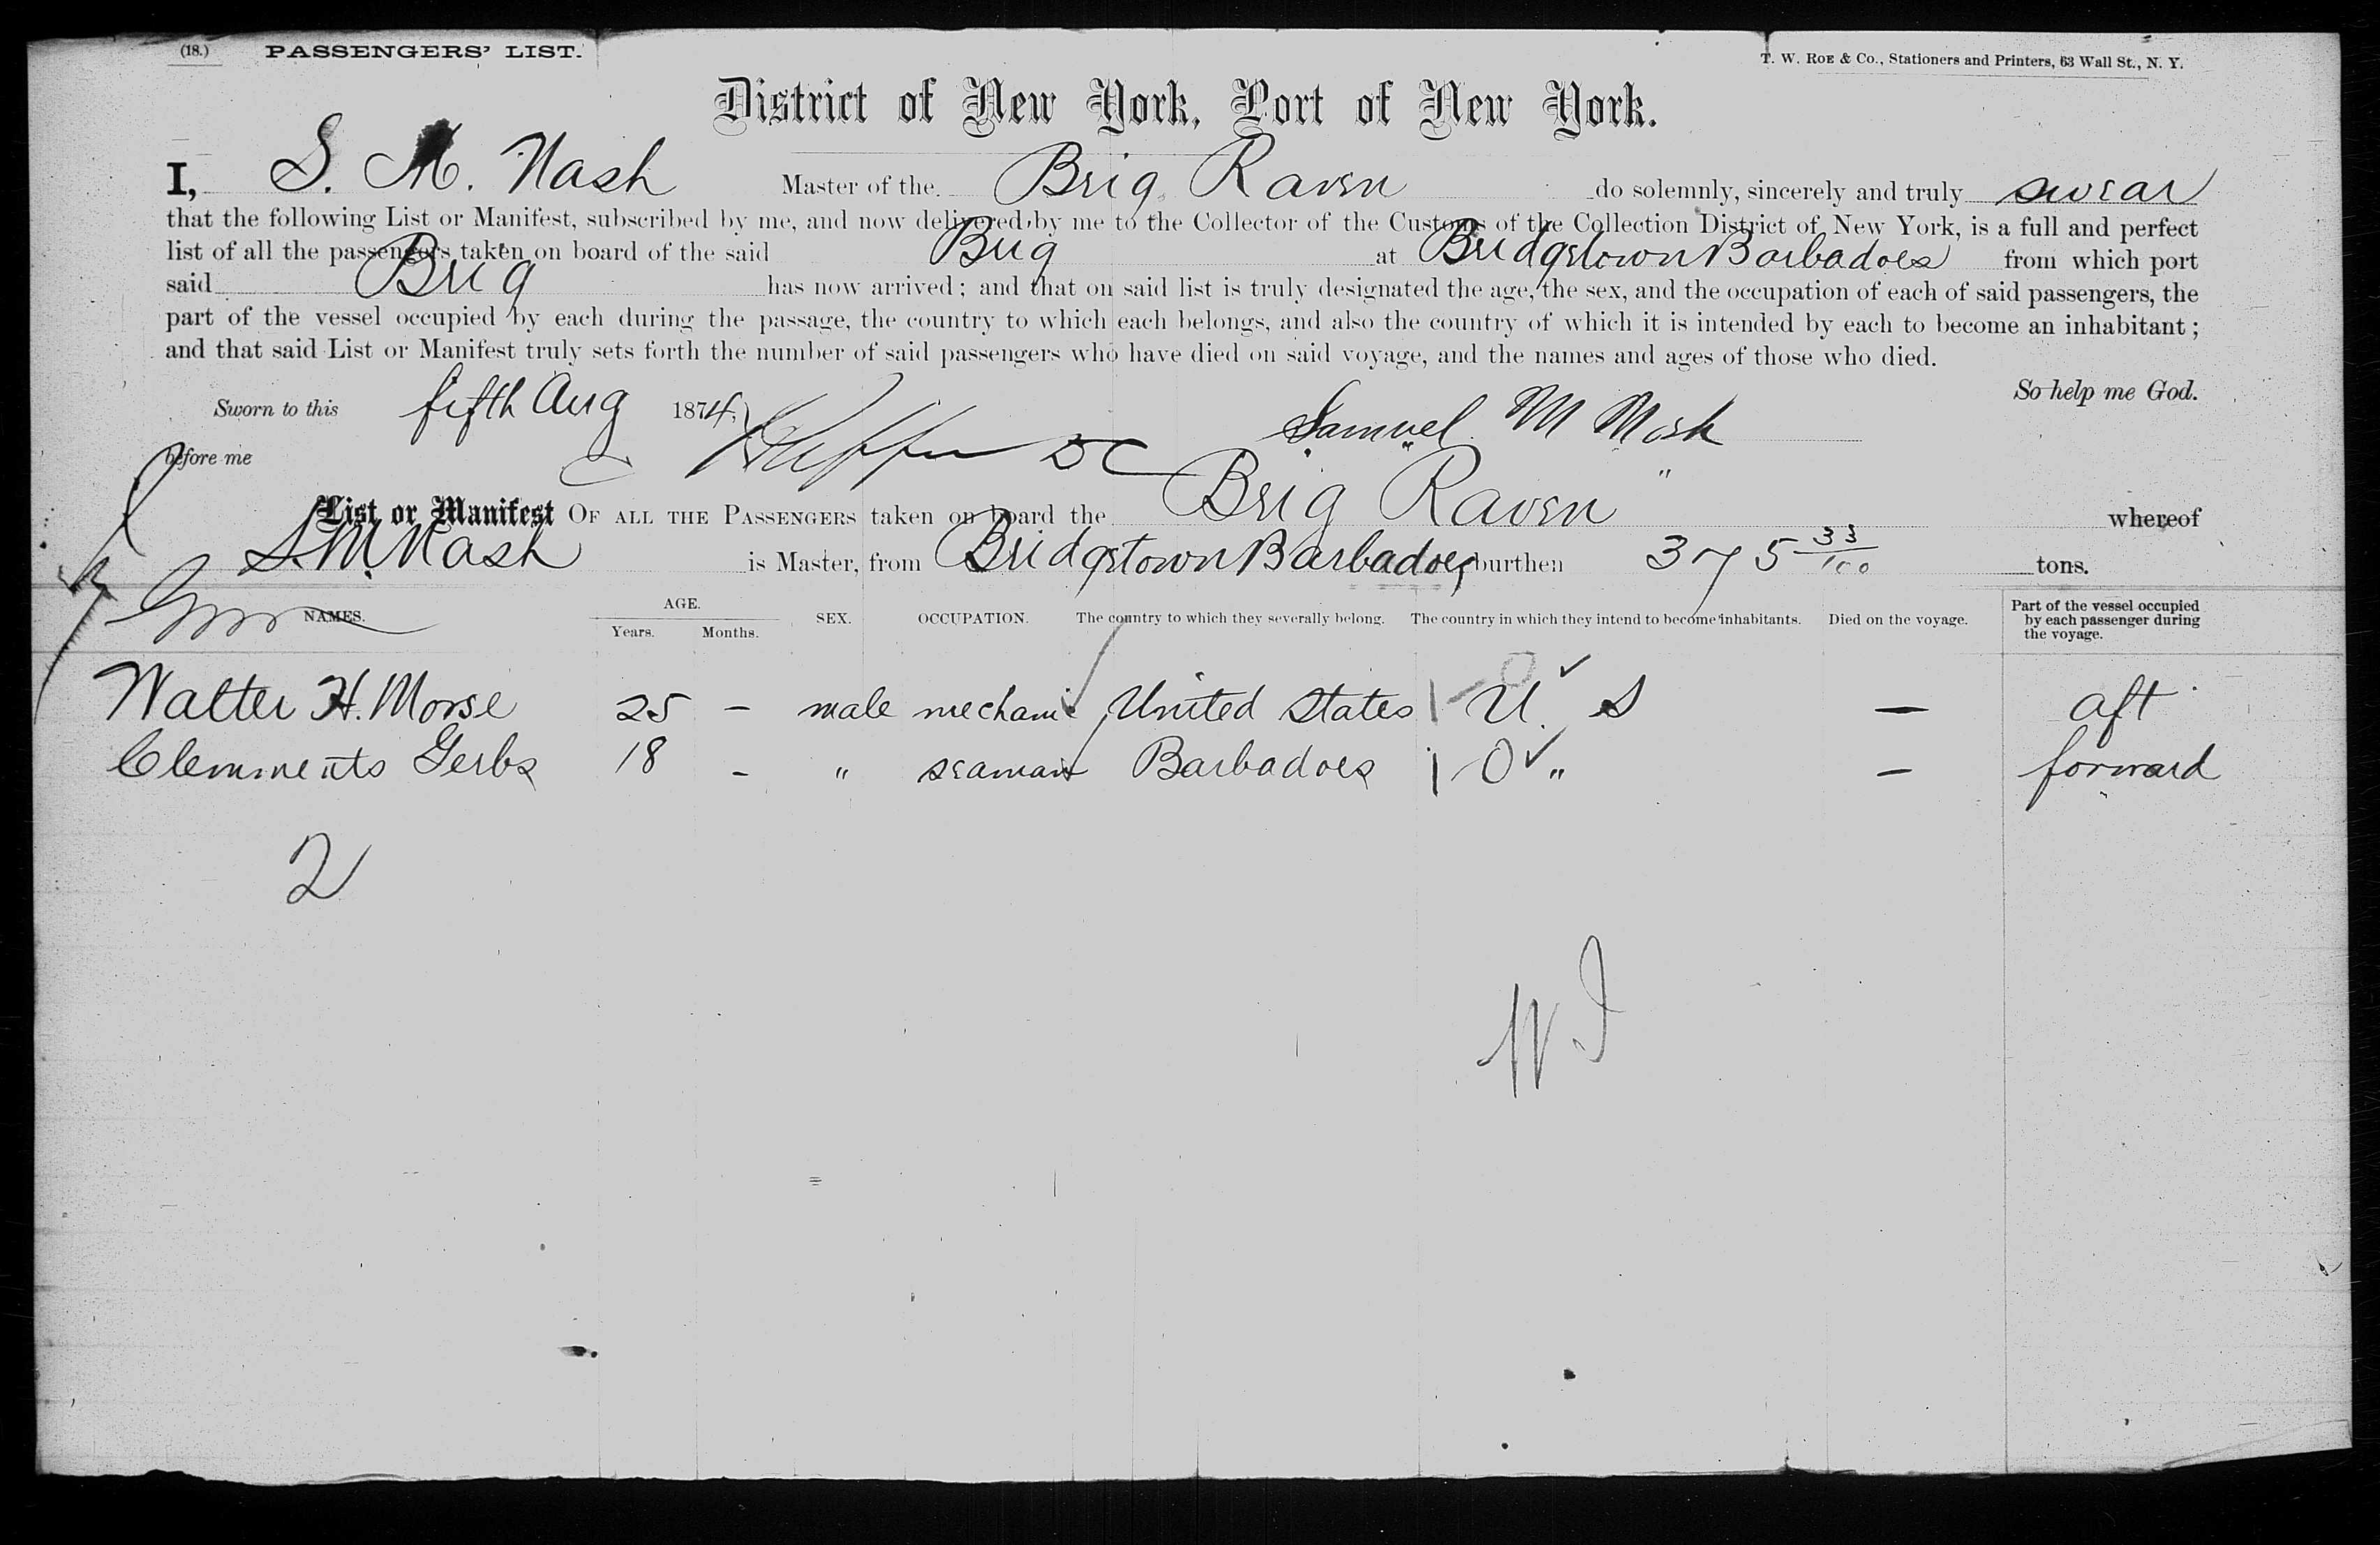 (18.) PASSENGERS' LIST.
T. W. ROE & CO., Stationers and Printers, 63 Wall St., N. Y.
District of New York, Port of New York.
I, S. M. Nash Master of the Brig Raven do solemnly, sincerely and truly swear
that the following List or Manifest, subscribed by me, and now delivered by me to the Collector of the Customs of the Collection District of New York, is a full and perfect
list of all the passengers taken on board of the said Brig at Bridgetown Barbadoes from which port
said Brig has now arrived; and that on said list is truly designated the age, the sex, and the occupation of each of said passengers, the
part of the vessel occupied by each during the passage, the country to which each belongs, and also the country of which it is intended by each to become an inhabitant;
and that said List or Manifest truly sets forth the number of said passengers who have died on said voyage, and the names and ages of those who died.
So help me God.
Sworn to this fifth Aug 1874
Samuel M Nash
before me DC
List or Manifest OF ALL THE PASSENGERS taken on board the Brig Raven whereof
S.M. Nash is Master, from Bridgetown Barbadoes burthen 375 33/100 tons.
NAMES. AGE. Years. Months. SEX. OCCUPATION. The country to which they severally belong. The country in which they intend to become inhabitants. Died on the voyage. Part of the vessel occupied by each passenger during the voyage.
Walter H. Morse 25 – male mechanic United States 1-0 ✓ U. S – aft
Clemments Gerbs 18 – " seaman Barbadoes 1-0 ✓ " – forward
2
W I